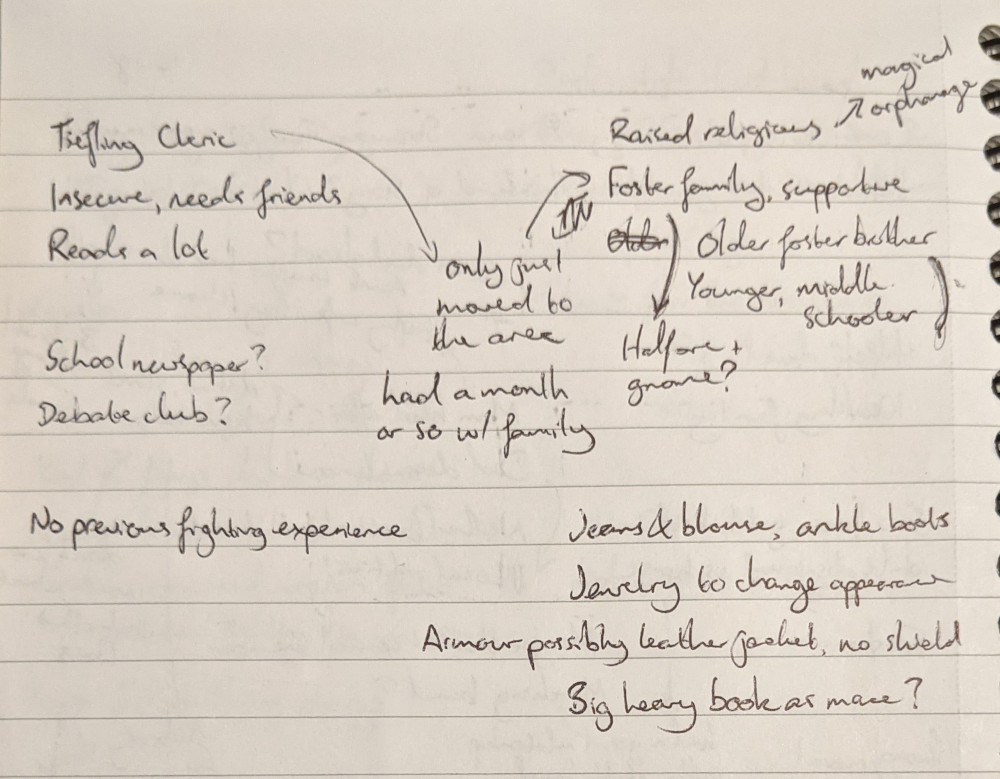 magical
orphanage
Tiefling Cleric
Raised religious
Insecure, needs friends
Foster family, supportive
Reads a lot
Older
Older foster brother
only just
moved to
the area
Younger, middle
schooler
School newspaper?
Halforc +
gnome?
Debate club?
had a month
or so w/ family
No previous fighting experience
Jeans & blouse, ankle boots
Jewelry to change appearance
Armour possibly leather jacket, no shield
Big heavy book as mace?